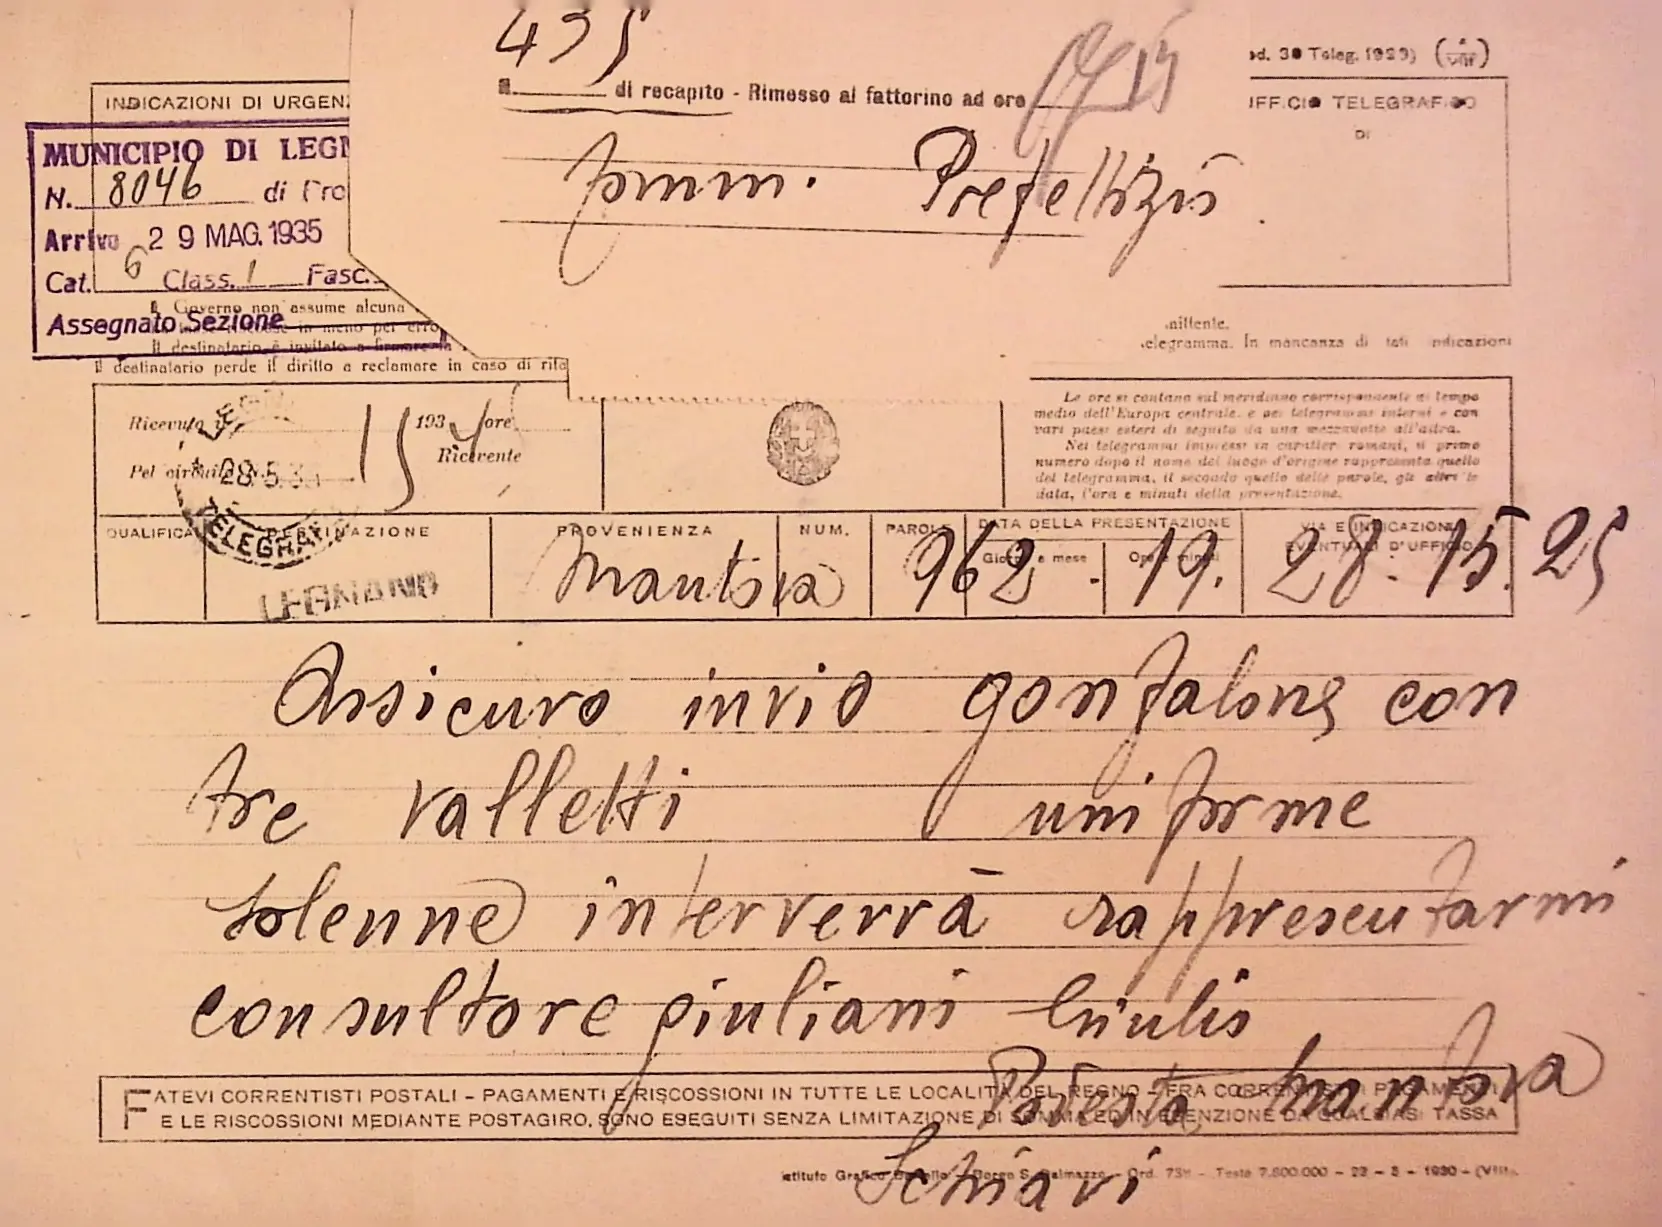 435
di recapito - Rimesso al fattorino ad ore
od. 30 Teleg. 1929)
INDICAZIONI DI URGEN
UFFICIO TELEGRAFICO
DI
MUNICIPIO DI LEGN
N. 8046 di Pro
Arrivo 29 MAG. 1935
Cat. 6 Class. 1 Fasc.
Assegnato Sezione
Comm. Prefettizio
Il Governo non assume alcuna
in meno per erro
Il destinatario è invitato a firmare la
il destinatario perde il diritto a reclamare in caso di rita
mittente.
elegramma. In mancanza di tali indicazioni
Ricevuto il 15 193 ore
Pel circuito N.
Ricevente
28.5.3
TELEGRAF
LEGNANO
Le ore si contano sul meridiano corrispondente al tempo
medio dell'Europa centrale, e pei telegrammi interni e con
vari paesi esteri di seguito da una mezzanotte all'altra.
Nei telegrammi impressi in caratteri romani, il primo
numero dopo il nome del luogo d'origine rappresenta quello
del telegramma, il secondo quello delle parole, gli altri la
data, l'ora e minuti della presentazione.
QUALIFICA DESTINAZIONE PROVENIENZA NUM. PAROLE DATA DELLA PRESENTAZIONE VIA E INDICAZIONI
Giorno e mese Ore e minuti EVENTUALI D'UFFICIO
Mantova 962 - 19. 28. 15.25
Assicuro invio gonfalone con
tre valletti uniforme
solenne interverrà rappresentarmi
consultore giuliani
Podestà Mantova
Schiavi
FATEVI CORRENTISTI POSTALI - PAGAMENTI E RISCOSSIONI IN TUTTE LE LOCALITÀ DEL REGNO - FRA CORRENTISTI I PAGAMENTI
E LE RISCOSSIONI MEDIANTE POSTAGIRO, SONO ESEGUITI SENZA LIMITAZIONE DI SOMMA ED IN ESENZIONE DA QUALSIASI TASSA
stituto Grafico Bertello - Borgo S. Dalmazzo - Ord. 73 - Teste 7.800.000 - 22 - 3 - 1930 - (VIII)